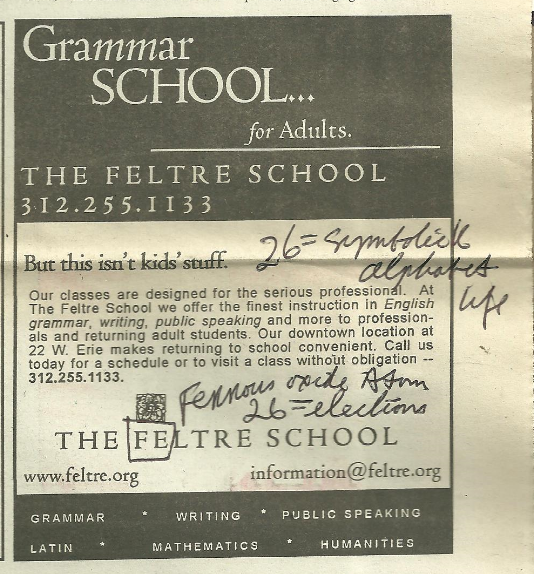 Grammar
SCHOOL...
for Adults.
THE FELTRE SCHOOL
312.255.1133
26 = symbolick
alphabet
life
But this isn't kids' stuff.
Our classes are designed for the serious professional. At
The Feltre School we offer the finest instruction in English
grammar, writing, public speaking and more to profession-
als and returning adult students. Our downtown location at
22 W. Erie makes returning to school convenient. Call us
today for a schedule or to visit a class without obligation --
312.255.1133.
Ferrous oxide Atom
26 = elections
THE FELTRE SCHOOL
www.feltre.org information@feltre.org
GRAMMAR * WRITING * PUBLIC SPEAKING
LATIN * MATHEMATICS * HUMANITIES